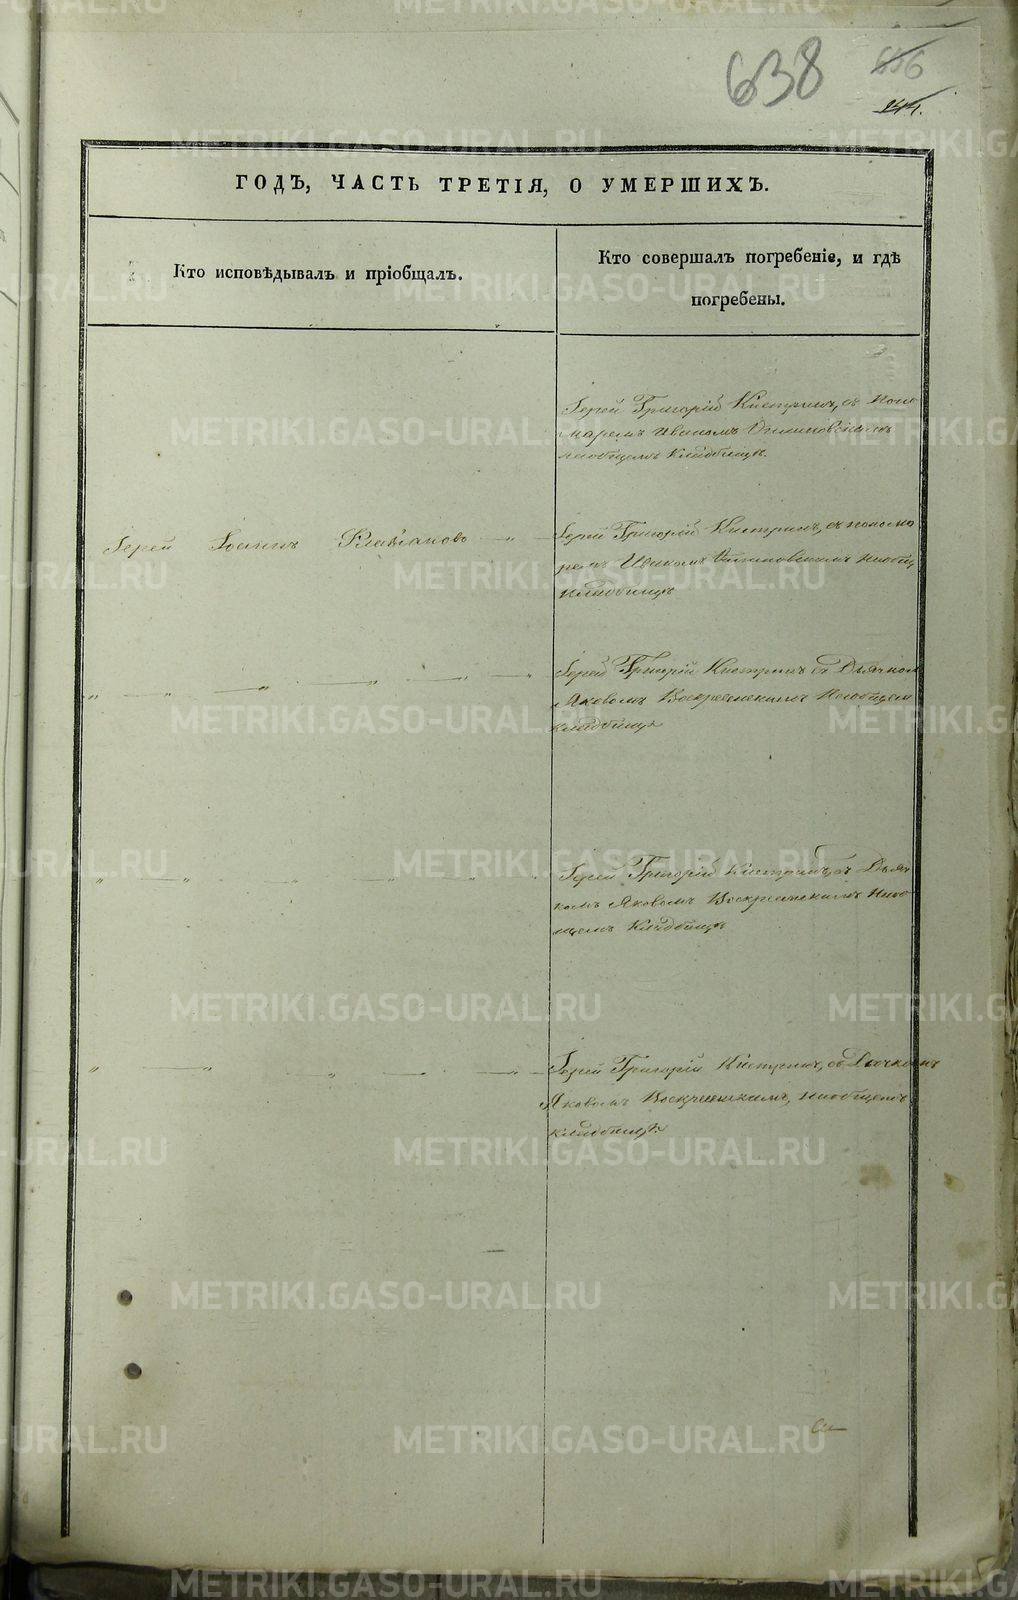 638
ГОДЪ, ЧАСТЬ ТРЕТІЯ, О УМЕРШИХЪ.
Кто исповѣдывалъ и пріобщалъ.
Кто совершалъ погребеніе, и гдѣ
погребены.
Іерей Григорій Кистринъ, съ Поно
маремъ Иваномъ
наобщемъ кладбищѣ.
Іерей Іоаннъ
Іерей Григорій Кистринъ, съ пономо
ремъ Иваномъ наобщ
кладбищѣ
Іерей Григорій Кистринъ съ Дьячком
Яковомъ Воскресенскимъ Наобщем
кладбищѣ
Іерей Григорій Кистринъ, съ Дьяч
комъ Яковомъ Воскресенскимъ Наоб
щемъ Кладбищѣ
Іерей Григорій Кистринъ, съ Дьячкомъ
Яковомъ Воскресенскимъ, наобщемъ
кладбищѣ.
METRIKI.GASO-URAL.RU